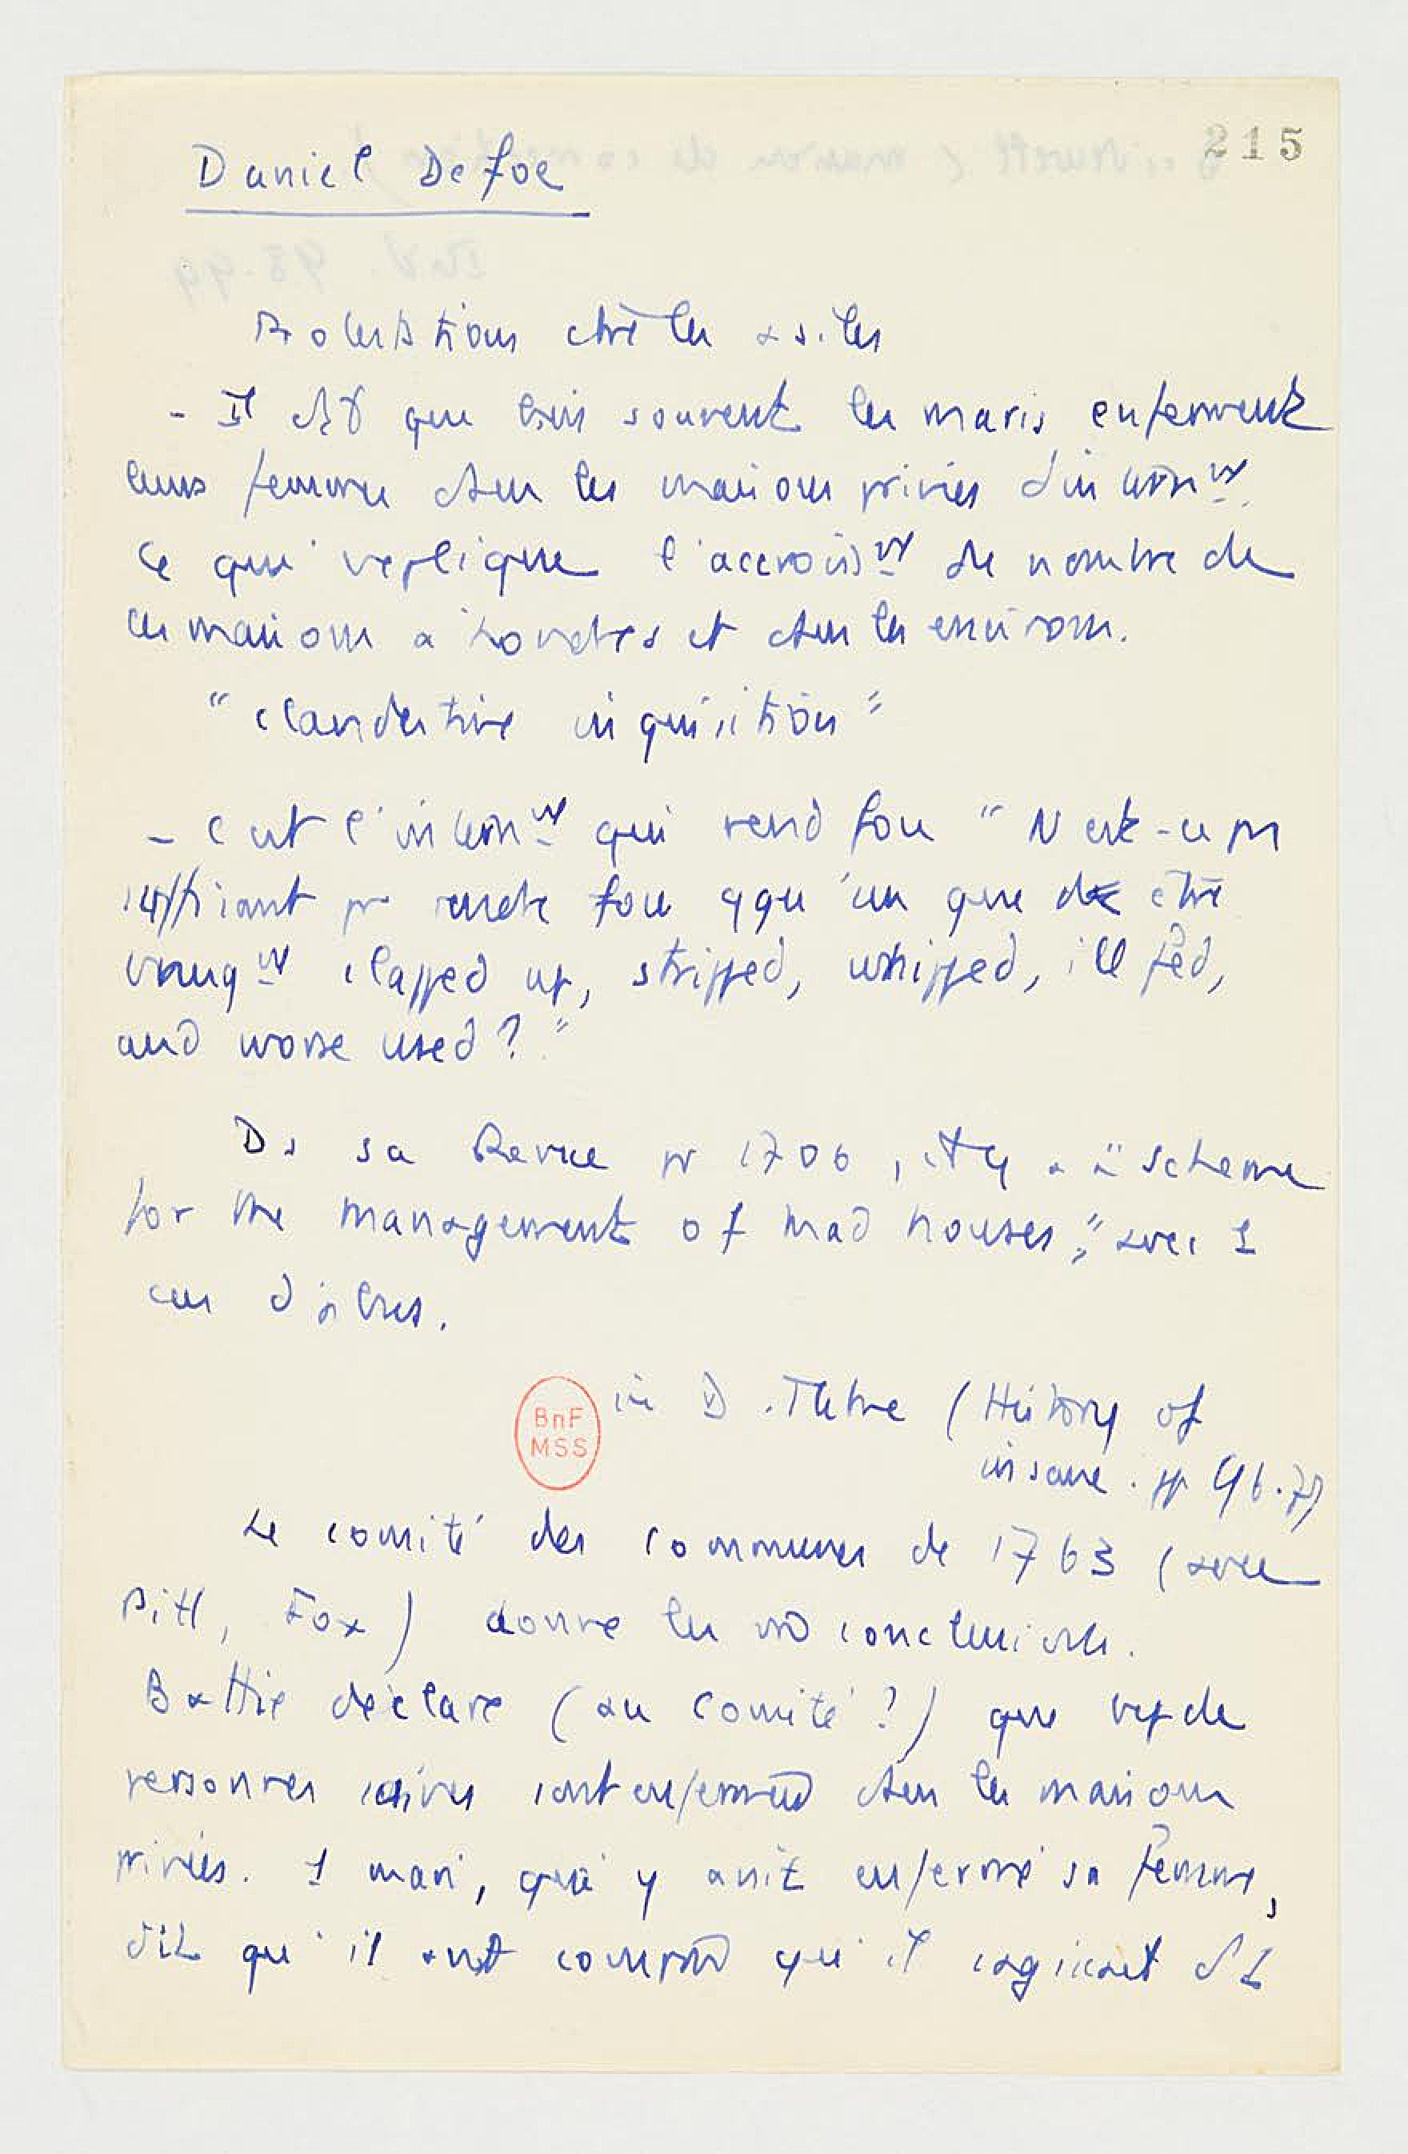 215
Daniel Defoe
Protestations ctre les asiles
- Il dit que très souvent les maris enferment
leurs femmes dans les maisons privées d'intern^mt.
Ce qui explique l'accroiss^mt du nombre de
ces maisons à Londres et dans les environs.
"clandestine inquisition"
- C'est l'intern^mt qui rend fou "N'est-ce pas
suffisant pr rendre fou qqu'un que d'être
brusq^mt clapped up, stripped, whipped, ill fed,
and worse used ?"
Ds sa Revue pr 1706, il y a "scheme
for the management of mad houses," avec 1
cas d'abus.
BnF
MSS
in D. (History of
insane. pp 96.7)
Le comité des Communes de 1763 (avec
Pitt, Fox) donne les m̂ conclusions.
Battie déclare (au Comité ?) que
personnes saines sont enfermées dans les maisons
privées. 1 mari, qui y avait enfermé sa femme,
dit qu'il avait compris qu'il s'agissait d'1